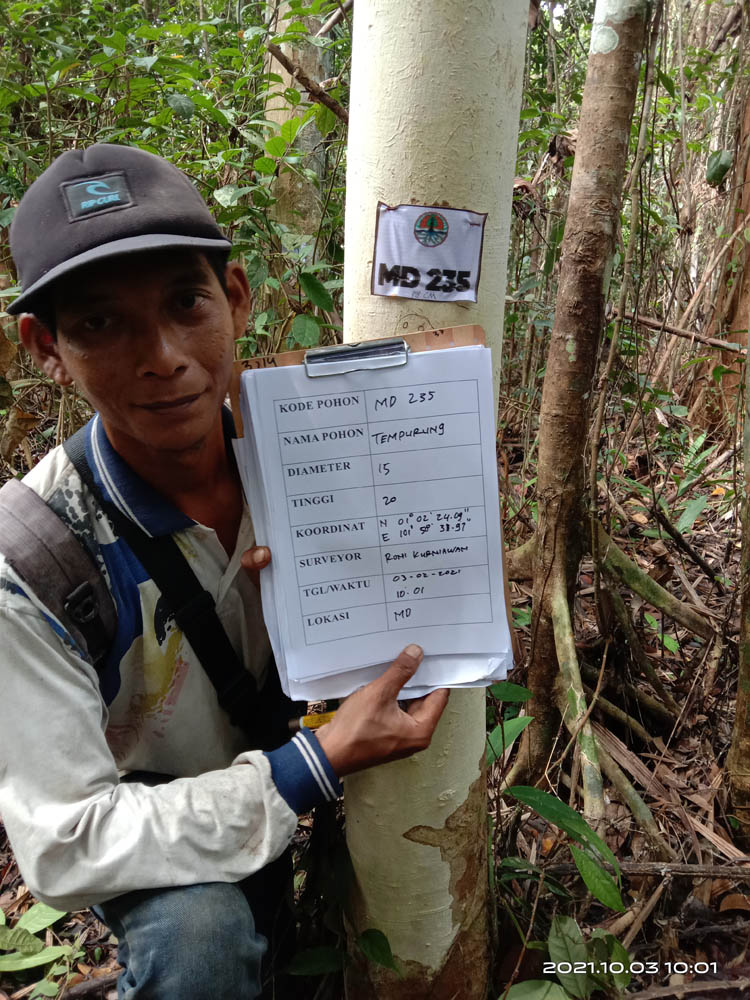 RIP CURL
MD 235
19 CM
KODE POHON MD 235
NAMA POHON TEMPURUNG
DIAMETER 15
TINGGI 20
KOORDINAT N 01° 02' 24.09"
E 101° 5°' 38.97"
SURVEYOR RONI KURNIAWAN
TGL/WAKTU 03-02-2021
10.01
LOKASI MD
2021.10.03 10:01